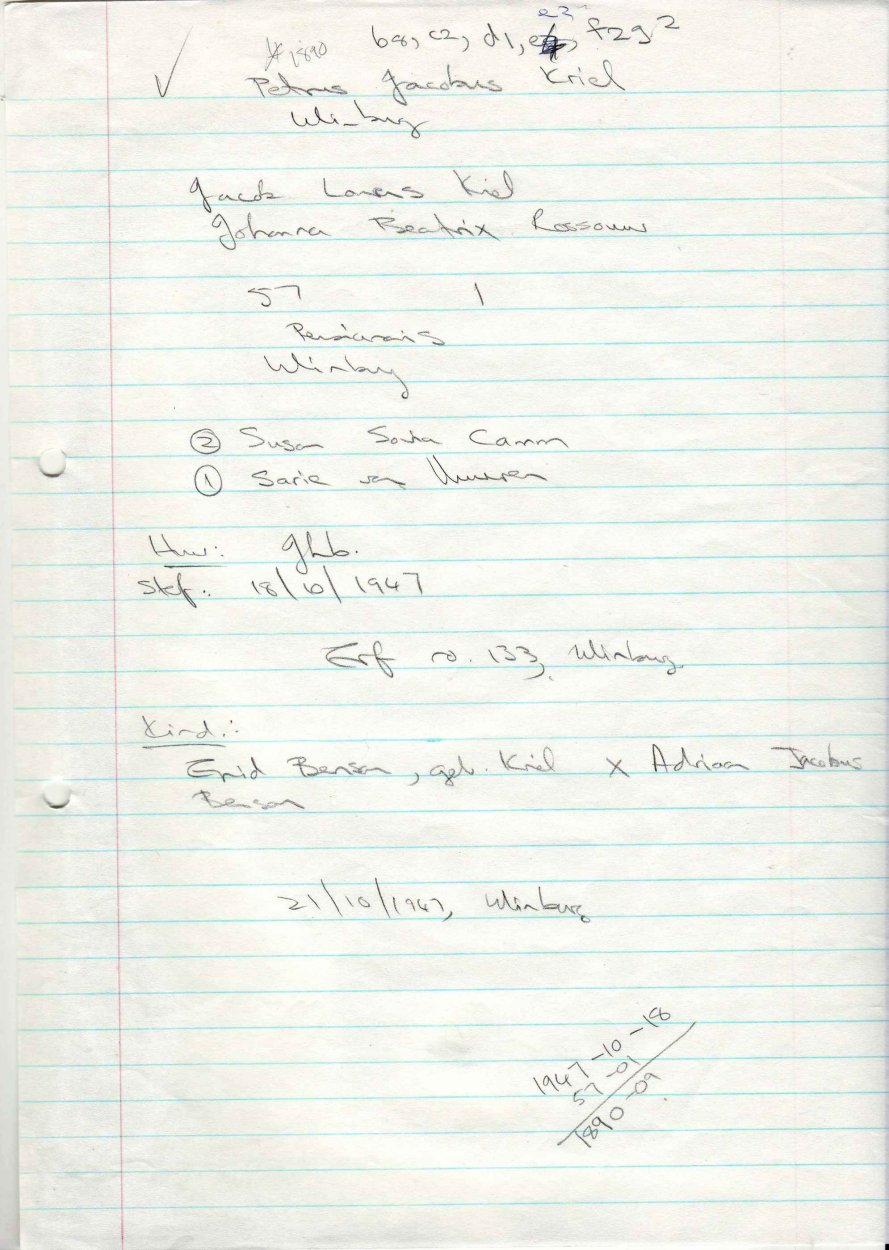 e3
b8, c2, d1, f2g2
*1890
Petrus Jacobus Kriel
Winburg
Jacob Lourens Kriel
Johanna Beatrix Rossouw
57 1
Pensionaris
Winburg
② Susan Sovia Camm
① Sarie van Vuuren
Huw: ghb.
Sterf: 18/10/1947
Erf no. 133, Winburg
Kind:
Enid Benson, geb. Kriel x Adriaan Jacobus
Benson
21/10/1947, Winburg
1947-10-18
57-01
1890-09